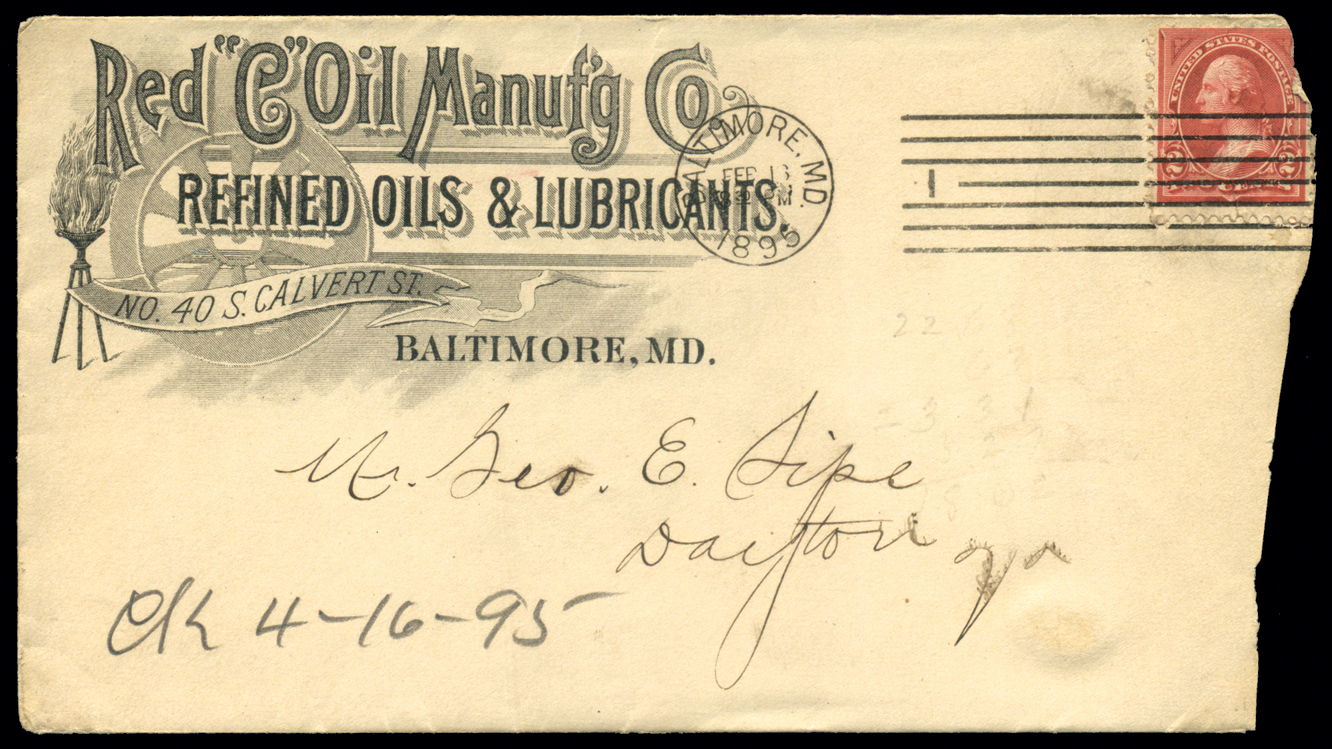 Red "C" Oil Manuf'g Co.
REFINED OILS & LUBRICANTS.
NO. 40 S. CALVERT ST.
BALTIMORE, MD.
BALTIMORE, MD.
FEB 13
30 PM
1895
1
UNITED STATES POSTAGE
2 2
Mr. Geo. E. Sipe
Dayton
Va
OK 4-16-95
22
2331